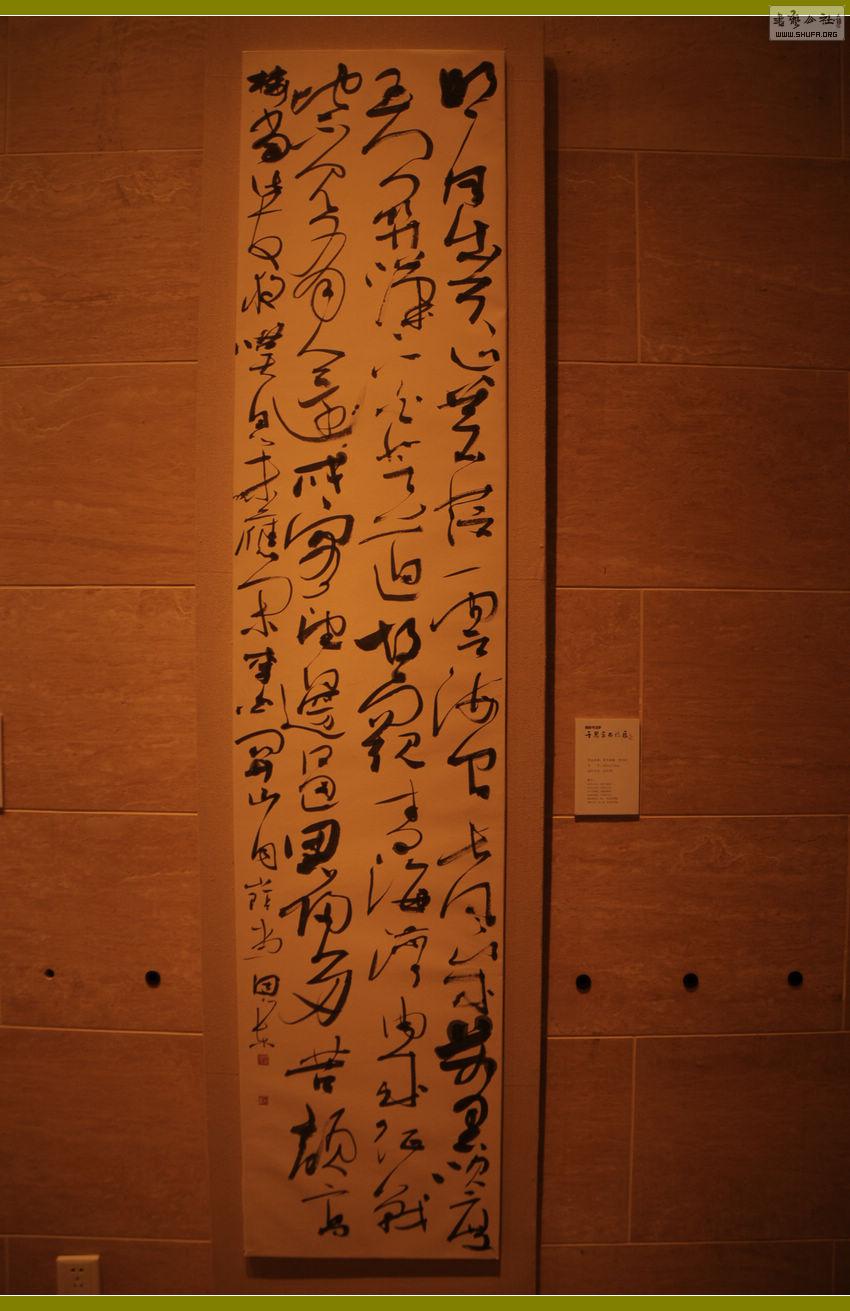 明月出天山蒼茫雲海間長風幾萬里吹度
玉門關漢下白登道胡窺青海灣由來征戰
地不見有人還戍客望邊邑思歸多苦顏高
樓當此夜嘆息未應閑李白關山月
WWW.SHUFA.ORG